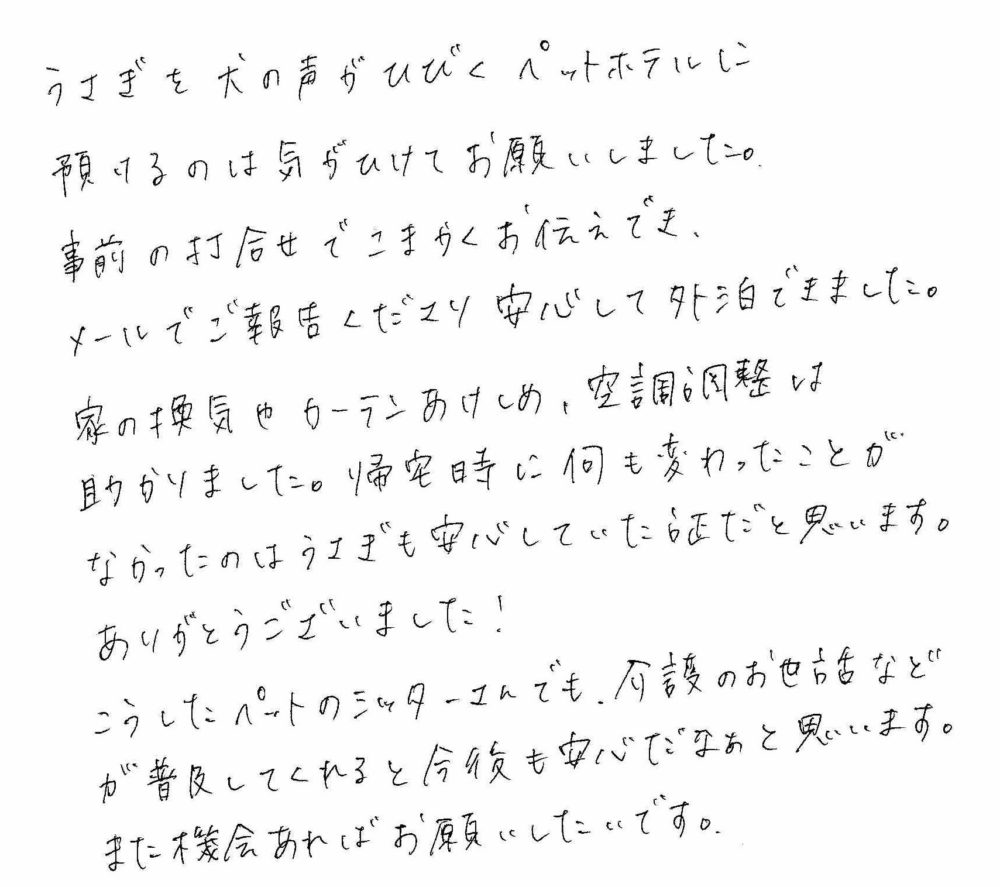 うさぎを犬の声がひびくペットホテルに
預けるのは気がひけてお願いしました。
事前の打合せでこまかくお伝えでき、
メールでご報告くださり安心して外泊できました。
家の換気やカーテンあけしめ、空調調整は
助かりました。帰宅時に何も変わったことが
なかったのはうさぎも安心していた証だと思います。
ありがとうございました!
こうしたペットのシッターさんでも、介護のお世話など
が普及してくれると今後も安心だなぁと思いいます。
また機会あればお願いしたいです。